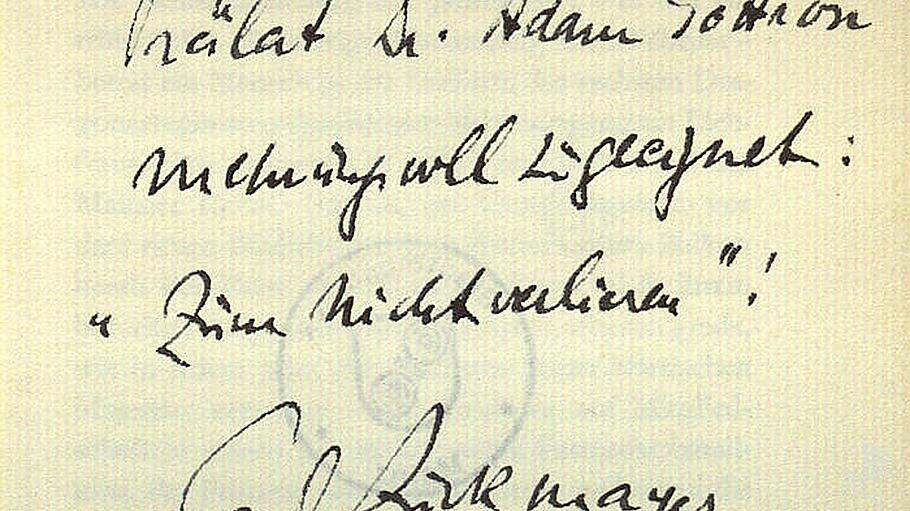 Prälat Dr. Adam Gottron
verehrungsvoll zugeeignet:
„Zum Nichtverlieren"!
Carl Zuckmayer